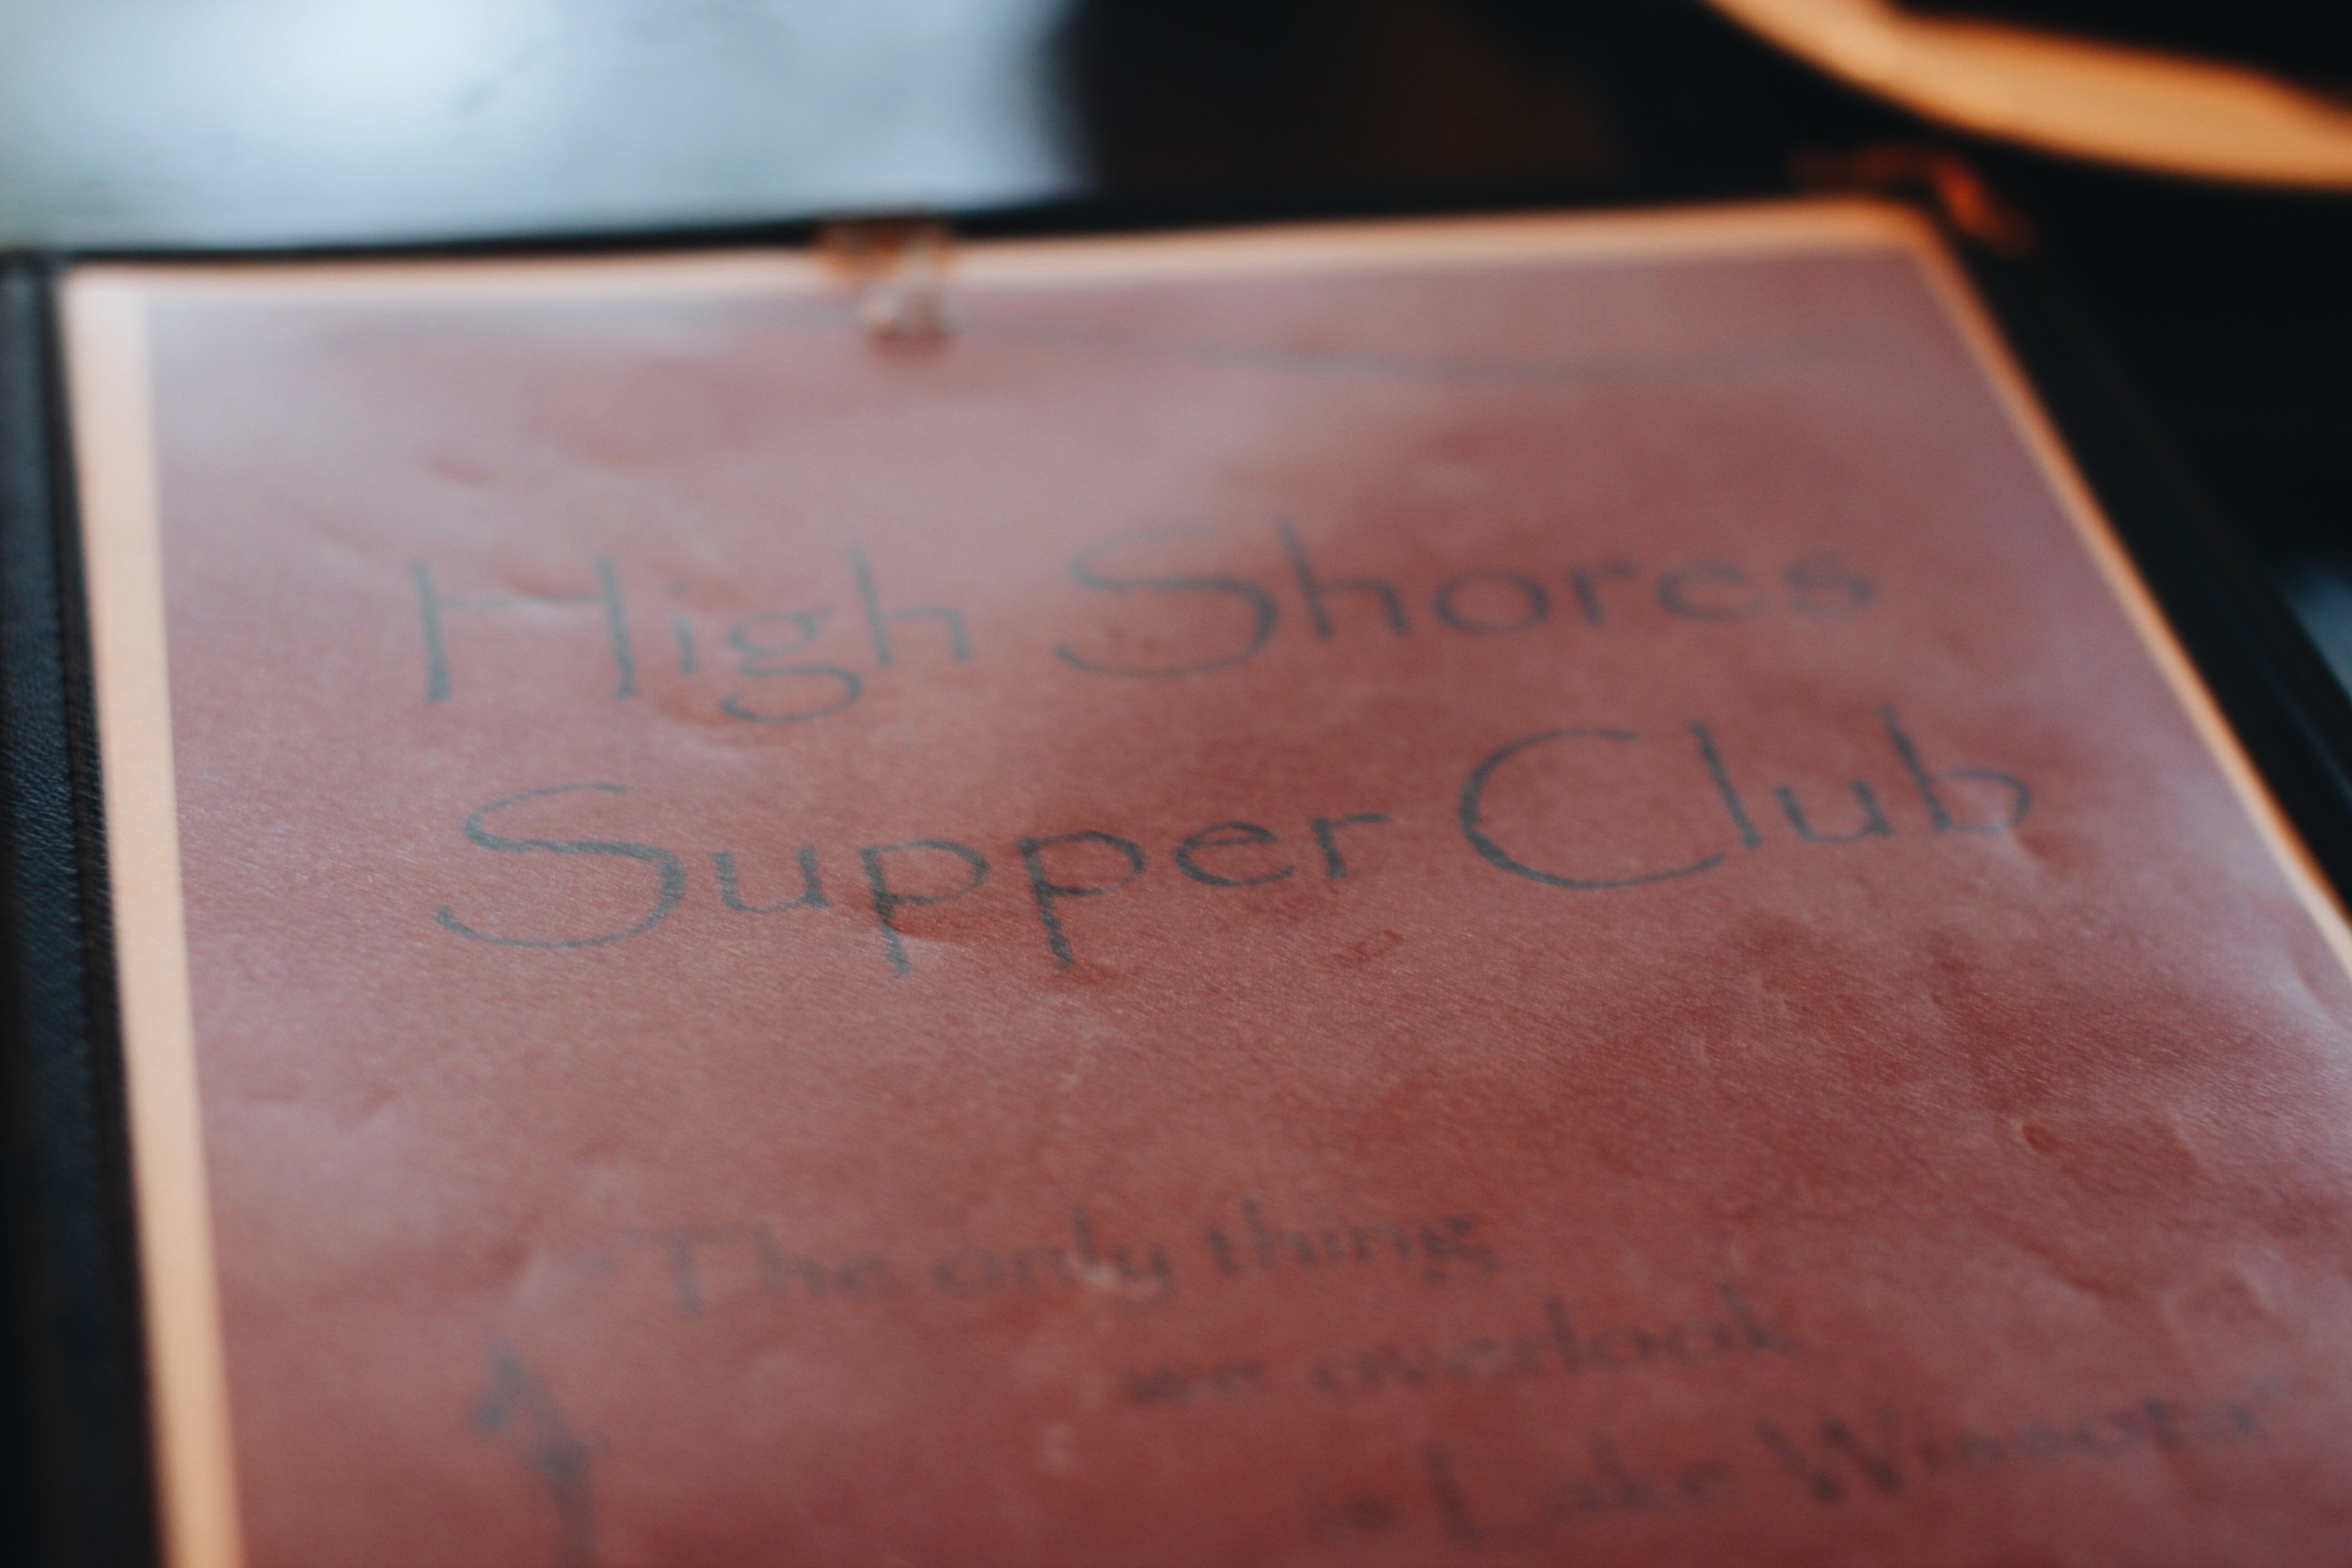 High Shores
Supper Club
"The only thing
we overlook
is Lake Wissota"